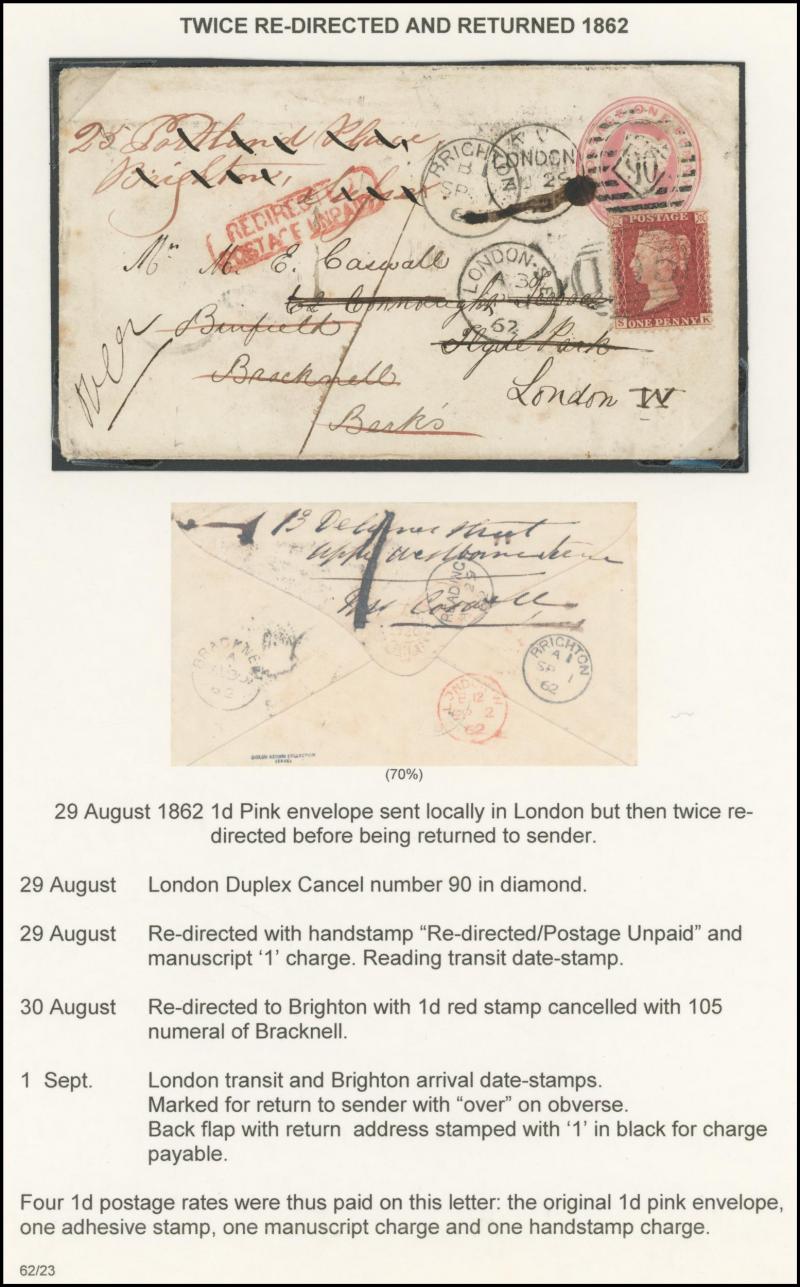 TWICE RE-DIRECTED AND RETURNED 1862
25 Portland Place
Brighton,
REDIRECTED
POSTAGE UNPAID
BRIGHTON
B
SP
62
LONDON
29
90
ON
POSTAGE
S ONE PENNY K
LONDON-S.E
62
Mrs M. E. Caswall
Connaught
Hyde Park
London W
Binfield
Bracknell
Berk's
over
1
13 Street
Upper Westbourne
Mrs Caswall
READING
29
BRACKNELL
A
62
BRIGHTON
A 1
SP 1
62
LONDON W
12
2
62
(70%)
29 August 1862 1d Pink envelope sent locally in London but then twice re-
directed before being returned to sender.
29 August London Duplex Cancel number 90 in diamond.
29 August Re-directed with handstamp “Re-directed/Postage Unpaid” and
manuscript ‘1’ charge. Reading transit date-stamp.
30 August Re-directed to Brighton with 1d red stamp cancelled with 105
numeral of Bracknell.
1 Sept. London transit and Brighton arrival date-stamps.
Marked for return to sender with “over” on obverse.
Back flap with return address stamped with ‘1’ in black for charge
payable.
Four 1d postage rates were thus paid on this letter: the original 1d pink envelope,
one adhesive stamp, one manuscript charge and one handstamp charge.
62/23